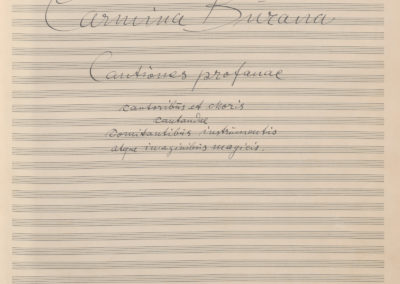 Carmina Burana
Cantiones profanae
cantoribus et choris
cantandae
comitantibus instrumentis
atque imaginibus magicis.